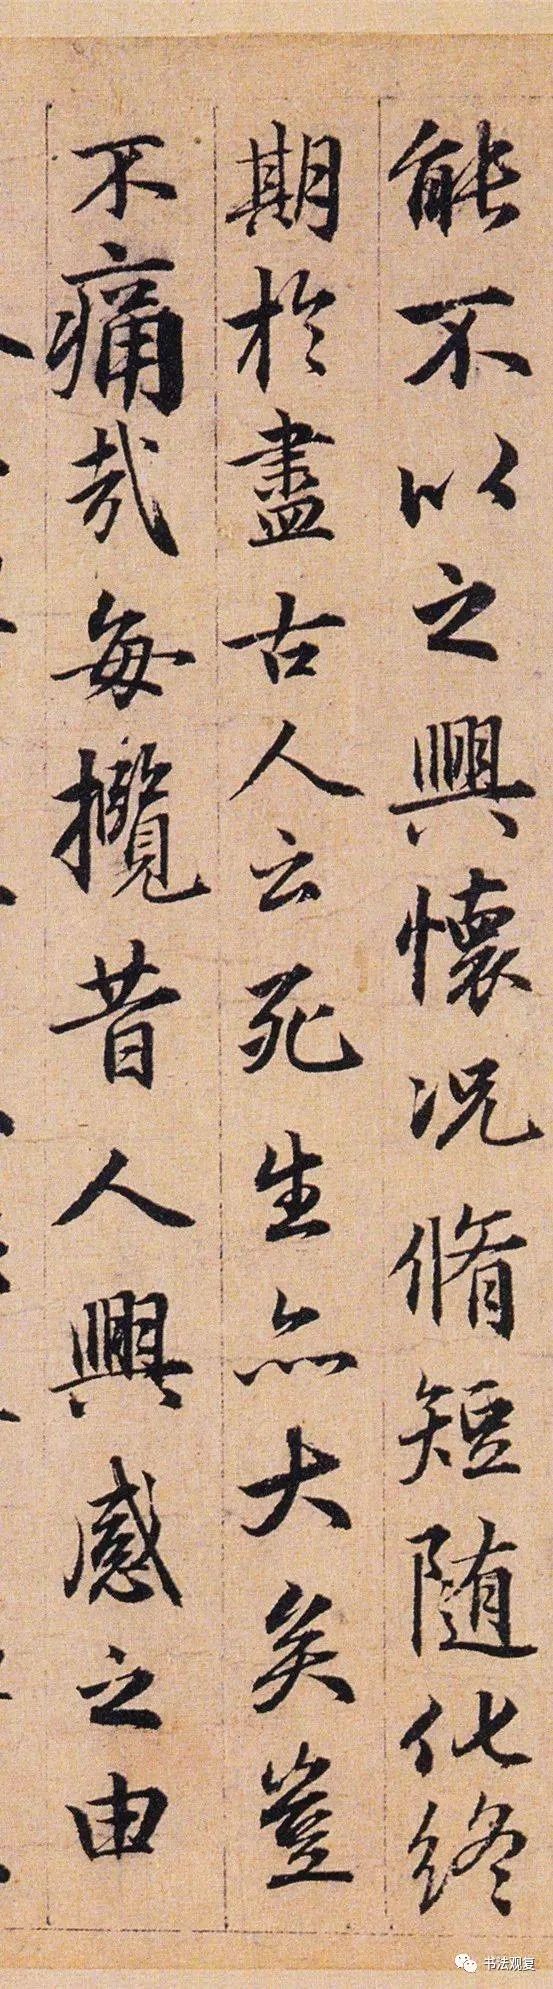 能不以之興懷况脩短随化終
期於盡古人云死生亦大矣豈
不痛哉每攬昔人興感之由
书法观复